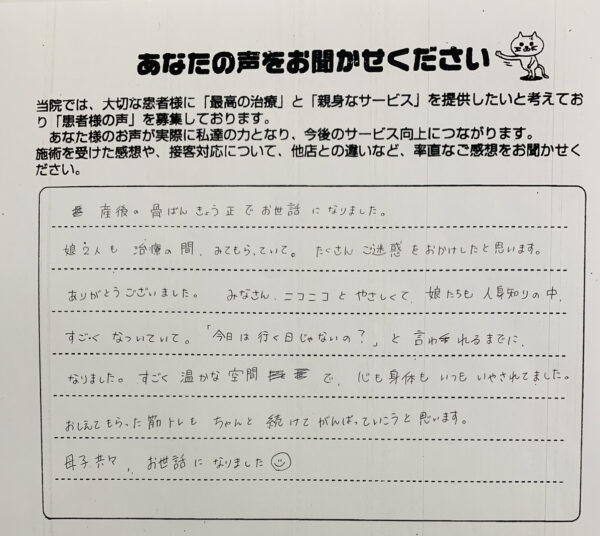 あなたの声をお聞かせください
当院では、大切な患者様に「最高の治療」と「親身なサービス」を提供したいと考えてお
り「患者様の声」を募集しております。
あなた様のお声が実際に私達の力となり、今後のサービス向上につながります。
施術を受けた感想や、接客対応について、他店との違いなど、率直なご感想をお聞かせく
ださい。
産後の骨ばんきょう正でお世話になりました。
娘2人も治療の間、みてもらっていて。たくさんご迷惑をおかけしたと思います。
ありがとうございました。 みなさん、ニコニコとやさしくて、娘たちも人身知りの中、
すごくなついていて。「今日は行く日じゃないの?」と言われるまでに、
なりました。すごく温かな空間で、心も身体もいつもいやされてました。
おしえてもらった筋トレもちゃんと続けてがんばっていこうと思います。
母子共々、お世話になりました☺